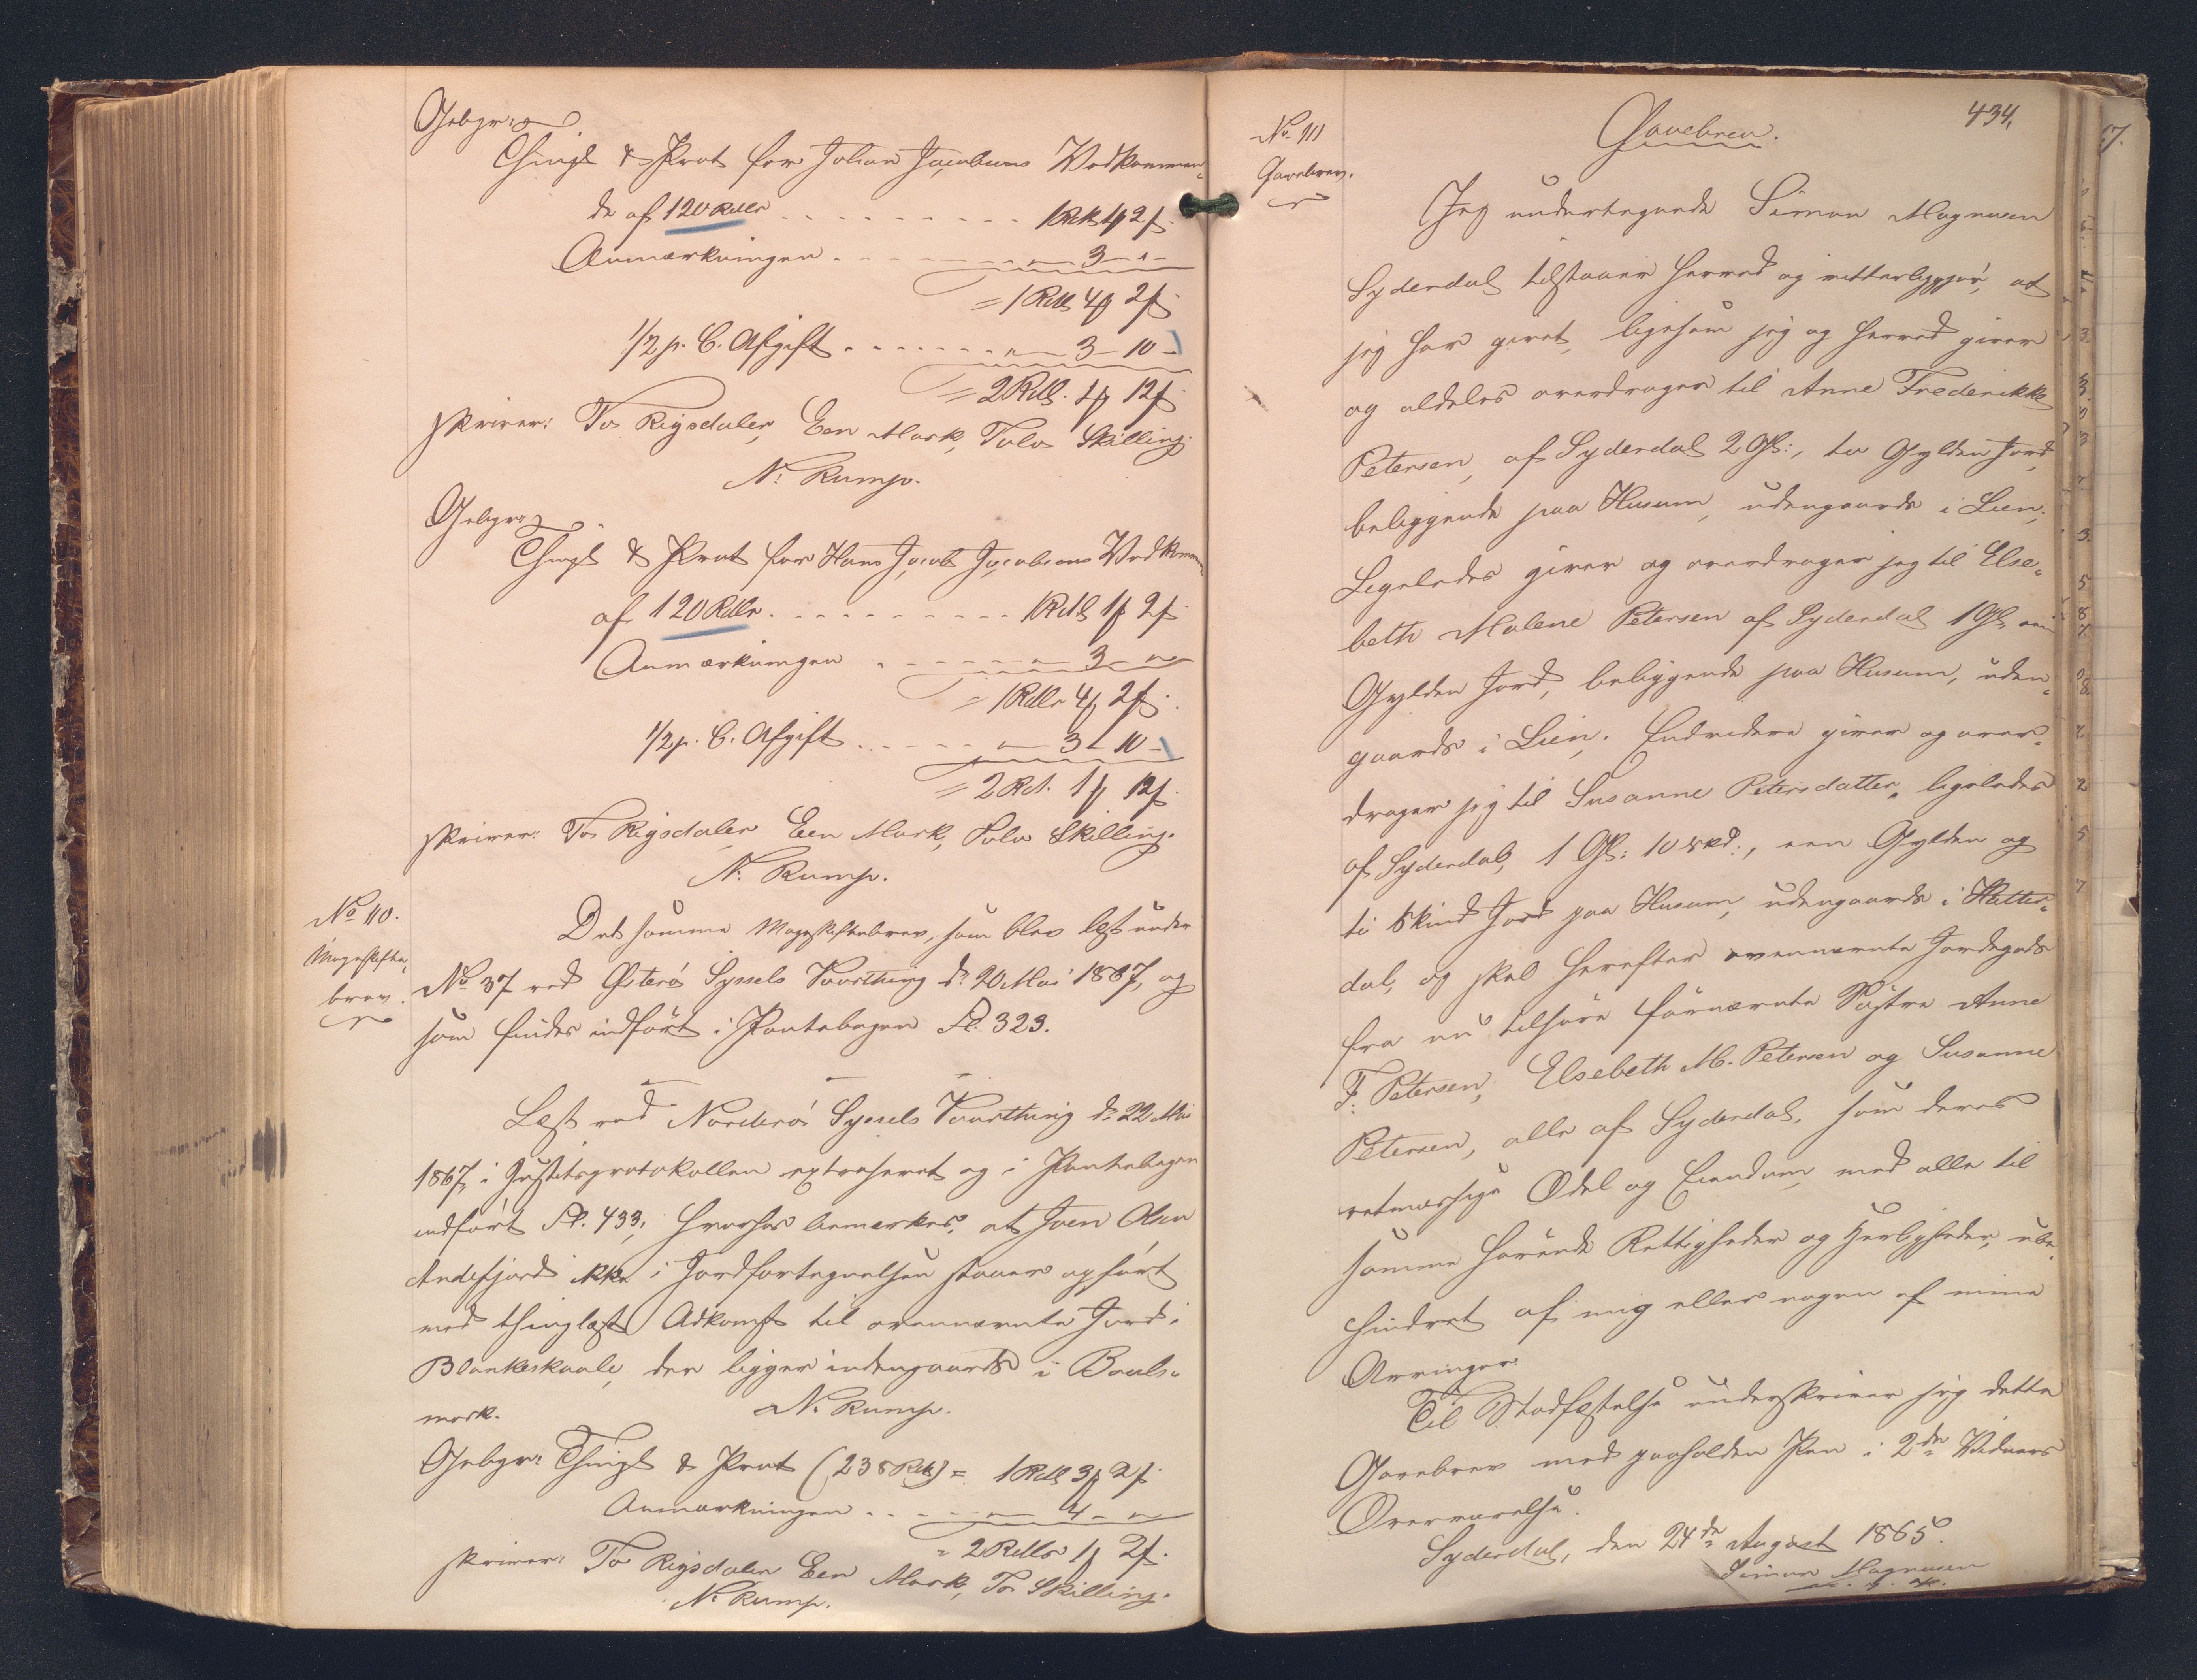 Gebyr:
Thingl & Prot for Johan Jacobsens Vedkommen-
de af 120 Rdlr . . . . . . . . . 1 Rdl 1 ℳ 2 ß.
Anmærkningen . . . . . . . — 3 - " -
= 1 Rdl 4 ℳ 2 ß.
1/2 p. C. Afgift . . . . . . . " — 3 - 10 -
= 2 Rdl. 1 ℳ 12 ß.
skriver: To Rigsdaler, Een Mark, Tolv Skilling.
N. Rump.
Gebyr:
Thingl & Prot for Hans Jacob Jacobsens Vedkommen-
af 120 Rdlr. . . . . . . . . . 1 Rdl 1 ℳ 2 ß.
Anmærkningen . . . . . . — 3 - " -
= 1 Rdlr 4 ℳ 2 ß.
1/2 p. C. Afgift . . . . . . — 3 - 10 -
= 2 Rd. 1 ℳ 12 ß.
skriver: To Rigsdaler Een Mark, Tolv Skilling.
N. Rump.
No 110.
Mageskifte-
brev.
Det samme Mageskiftebrev, som blev læst under
No 37 ved Østerø Syssels Vaarthing d: 20 Mai 1867, og
som findes indført i Pantebogen Fl. 323.
Læst ved Norderø Syssels Vaarthing d: 22 Mai
1867, i Justitsprotokollen extraheret og i Pantebogen
indført Fl. 433; hvorhos bemærkes, at Joen Olsen
Andefjord ikke i Jordfortegnelsen staaer opført
med thinglæst Adkomst til ovennævnte Jord i
Blankeskaale, der ligger indengaards i Bouls-
mark.
N. Rump.
Gebyr: Thingl & Prot (238 Rdl) = 1 Rdl 3 ℳ 2 ß.
Anmærkningen . . . . . — 4 - " -
= 2 Rdlr 1 ℳ 2 ß.
skriver: To Rigsdaler Een Mark, To Skilling.
N. Rump.
434.
No 111
Gavebrev.
Gavebrev.
Jeg undertegnede Simon Magnusen
Syderdal tilstaaer herved og vitterliggjør, at
jeg har givet, ligesom jeg og herved giver
og aldeles overdrager til Anne Frederikke
Petersen, af Syderdal 2 Gl:, to Gylden Jord,
beliggende paa Husum, udengaards i Lien;
Ligeledes giver og overdrager jeg til Else-
beth Malene Petersen af Syderdal 1 Gl, een
Gylden Jord, beliggende paa Husum, uden-
gaards i Lien. Endvidere giver og over-
drager jeg til Susanne Petersdatter, ligeledes
af Syderdal, 1 Gl: 10 Skd:, een Gylden og
ti Skind Jord paa Husum, udengaards i Hatter-
dal, og skal herefter ovennævnte Jordegods
fra nu tilhøre førnævnte Søstre Anne
F. Petersen, Elsebeth M. Petersen og Susanne
Petersen, alle af Syderdal, som deres
retmæssige Odel og Eiendom, med alle til
samme hørende Rettigheder og Herligheder, ube-
hindret af mig eller nogen af mine
Arvinger.
Til Stadfæstelse underskriver jeg dette
Gavebrev med paaholden Pen i 2de Vidners
Overværelse.
Syderdal, den 24de August 1865.
Simon Magnusen
m. f. P.